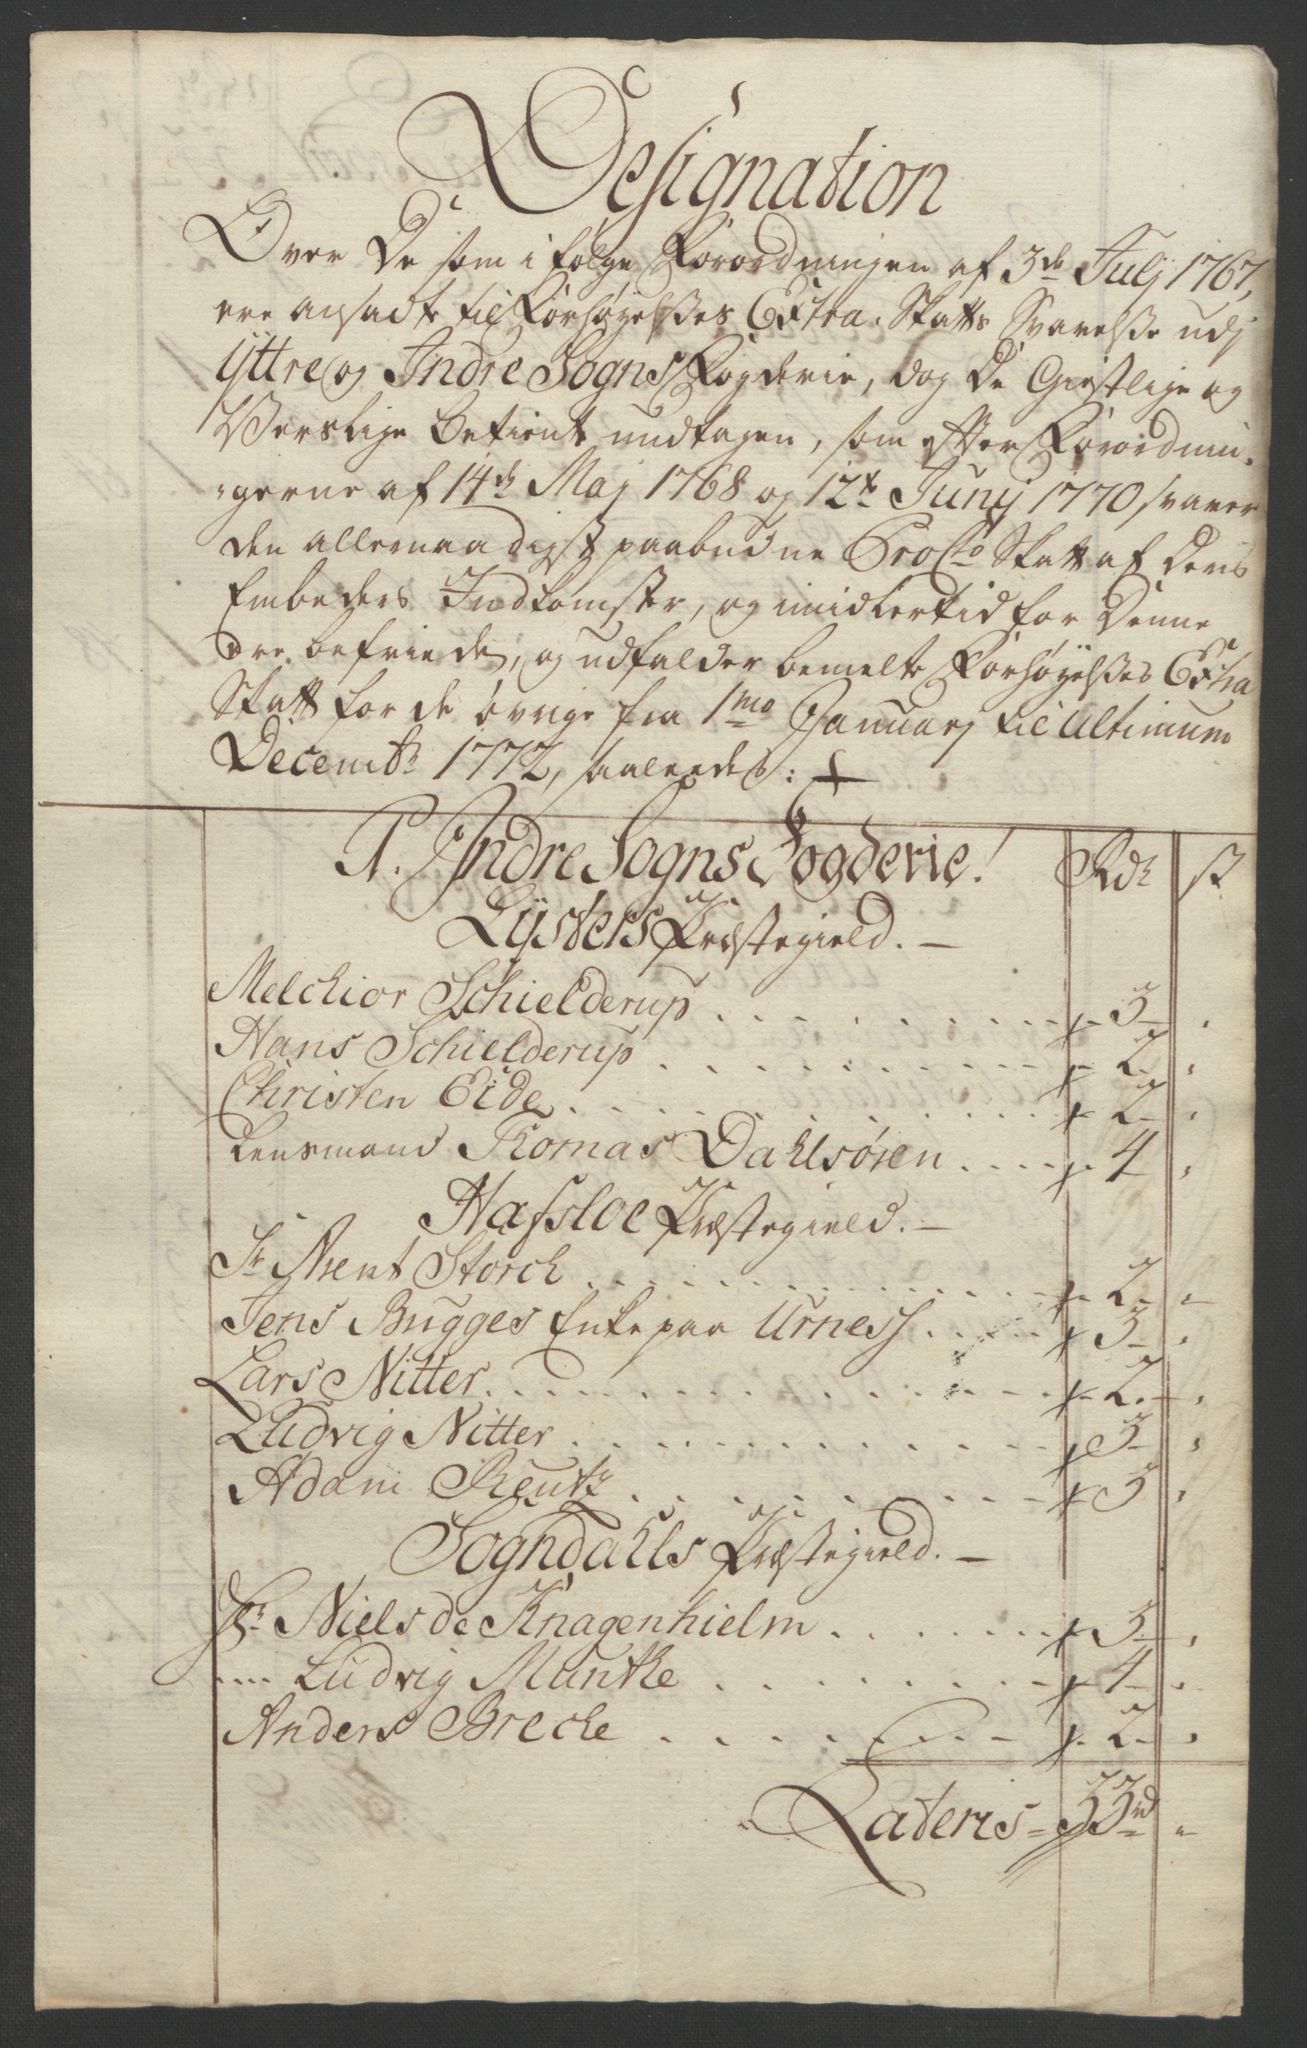 Designation
Over De som i følge Forordningen af 3de Julj 1767,
ere ansadt til Forhøyelsses Extra-Skatts Svarelsse udj
Yttre og Indre Sogns Fogderie, dog De Giestlige og
Verslige betient undtagen, som efter Forordnin-
-gerne af 14de Maj 1768 og 12te Junij 1770 svarer
den allernaadigst paabudne ProCto Skatt af Deris
Embeders Indkomster, og imidlertid for Denne
ere befriede, og udfalder bemelte Forhøyelsses Extra
Skatt for de øvrige fra 1mo Januarj til Ultimum
Decembr 1772, saaledes:
1. Indre Sogns Fogderie! Rdr s
Lysters Præstegield. —
Melchior Schielderup . . . 3 "
Hans Schielderup . . . 2 "
Christen Eide . . . 2 "
Lensmand Thomas Dahlsøren . . . 4 "
Hafsloe Præstegield. —
Sr Nent Storch . . . 2 "
Jens Bugges Enke paa Urness . . . 3 "
Lars Nitter . . . 2 "
Ludvig Nitter . . . 3 "
Adam Reutz . . . 3 "
Sogndahls Præstegield. —
Hr Niels de Knagenhielm . . . 3 "
---- Ludvig Munthe . . . 4 "
Anders Breche . . . 2 "
Lateris = 33rd "